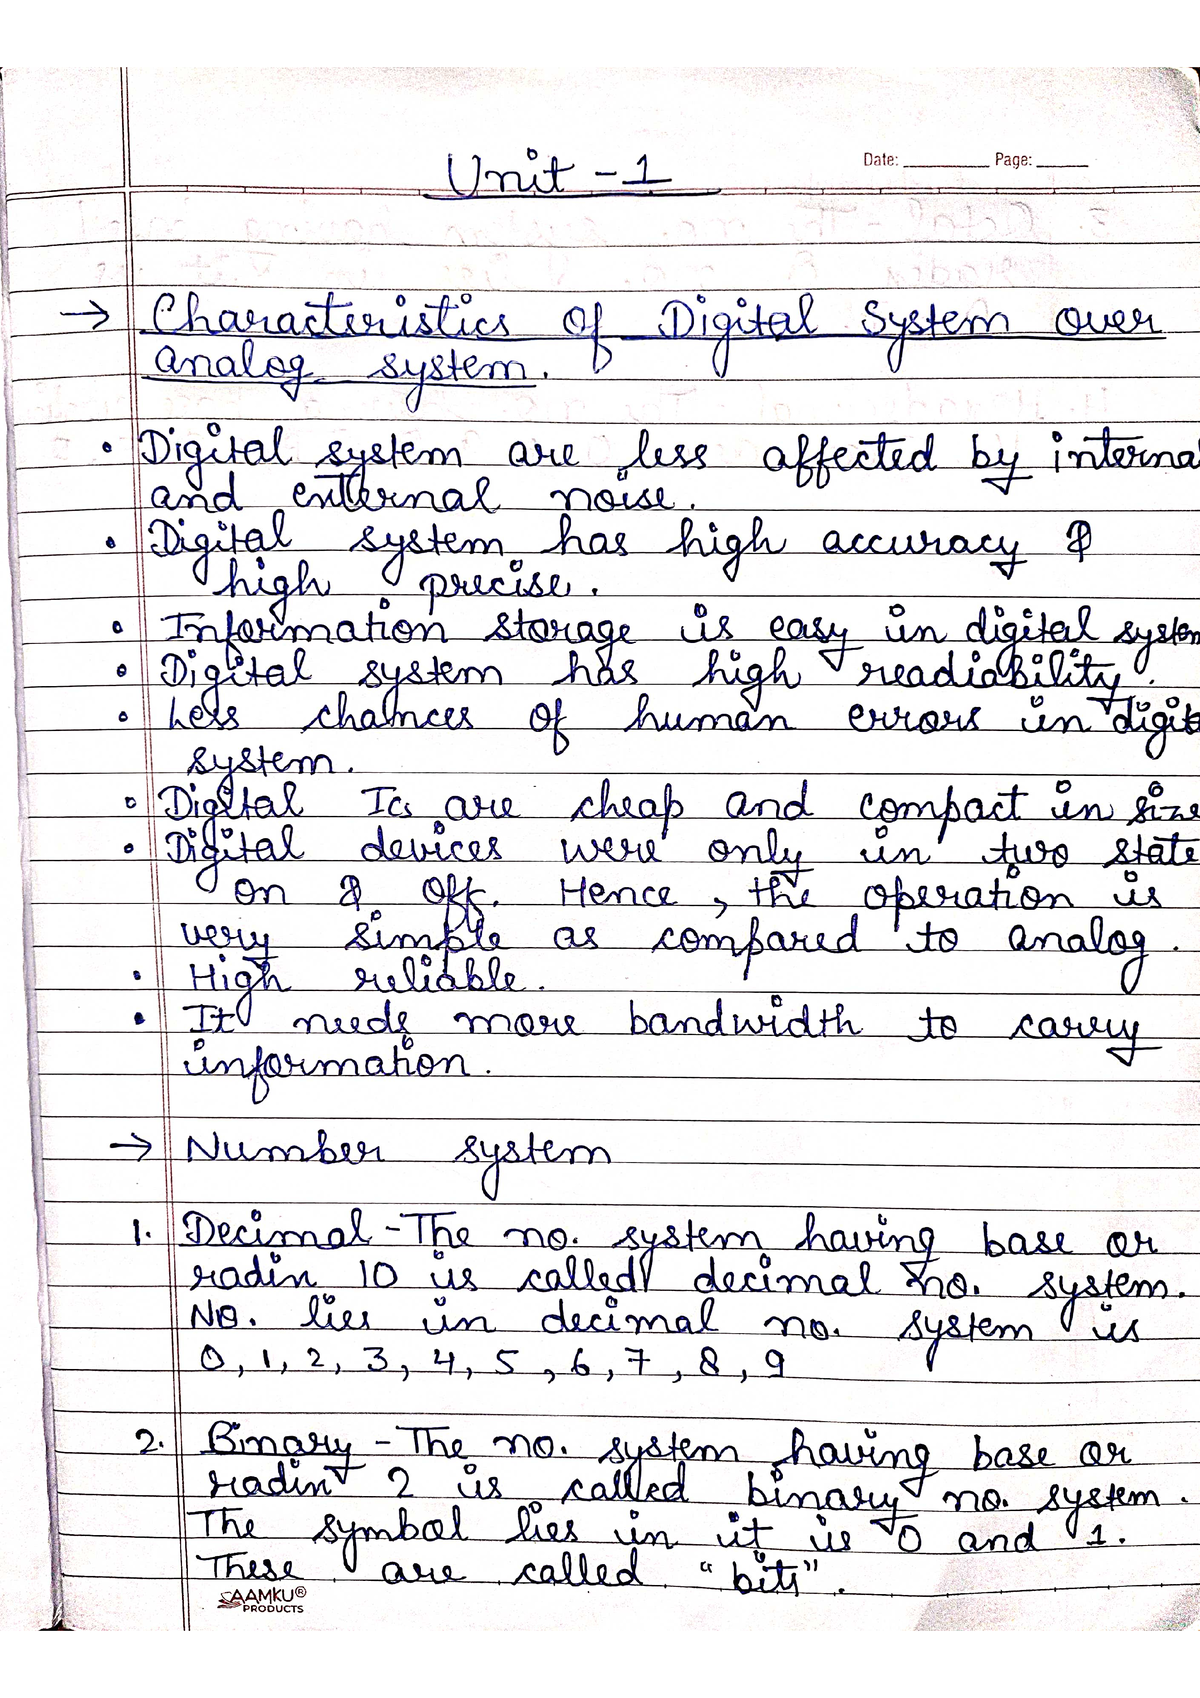 Date: ________ Page: ______
Unit - 1
→ Characteristics of Digital System over
analog system.
• Digital system are less affected by interna
and external noise.
• Digital system has high accuracy &
high precise.
• Information storage is easy in digital system
• Digital system has high readiability.
• Less chances of human errors in digit
system.
• Digital ICs are cheap and compact in size
• Digital devices were only in two state
on & off. Hence, the operation is
very simple as compared to analog.
• High reliable.
• It needs more bandwidth to carry
information.
→ Number system
1. Decimal - The no. system having base or
radin 10 is called decimal no. system.
NO. lies in decimal no. system is
0, 1, 2, 3, 4, 5, 6, 7, 8, 9
2. Binary - The no. system having base or
radin 2 is called binary no. system.
The symbol lies in it is 0 and 1.
These are called "bits".
AAMKU®
PRODUCTS